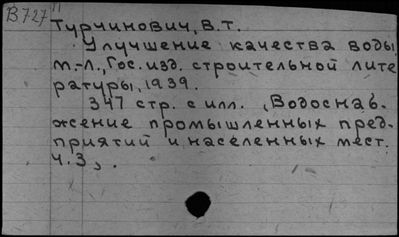 В727 П
Турчинович, В.Т.
Улучшение качества воды
М.-Л., Гос. изд. строительной лите
ратуры, 1939.
347 стр. с илл. (Водоснаб-
жение промышленных пред-
приятий и населенных мест.
ч.3).